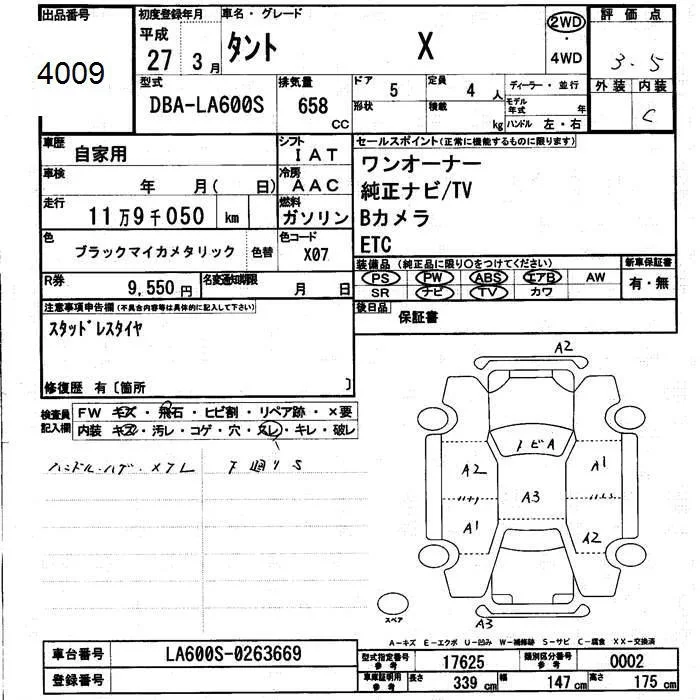 出品番号
4009
初度登録年月
平成
27年 3月
車名・グレード
タント X
2WD
・
4WD
評価点
3.5
型式
DBA-LA600S
排気量
658 CC
ドア 5
形状
定員 4人
積載 kg
ディーラー・並行
モデル年式 年
ハンドル 左・右
外装 内装
C
車歴
自家用
シフト
IAT
車検
年 月( 日)
冷房
AAC
走行
11万9千050 km
燃料
ガソリン
色
ブラックマイカメタリック
色替
色コード
X07
R券
9,550円
名変通知期限
月 日
セールスポイント(正常に機能するものに限ります)
ワンオーナー
純正ナビ/TV
Bカメラ
ETC
装備品(純正品に限り○をつけてください)
PS PW ABS エアB AW
SR ナビ TV カワ
新車保証書
有・無
後日品 保証書
注意事項申告欄(不具合内容等は具体的に記入して下さい)
スタッドレスタイヤ
修復歴 有〔箇所 〕
検査員記入欄
FW キズ・飛石・ヒビ割・リペア跡・×要
内装 キズ・汚レ・コゲ・穴・スレ・キレ・破レ
ハンドル・ハゲ・スレ
下廻りS
A2
トビA
A2
A1
A3
A1
A2
A3
スペア
A-キズ E-エクボ U-凹み W-補修跡 S-サビ C-腐食 XX-交換済
車台番号 LA600S-0263669
登録番号
型式指定番号参考 17625
類別区分番号参考 0002
車庫証明用参考
長さ 339cm
幅 147cm
高さ 175cm